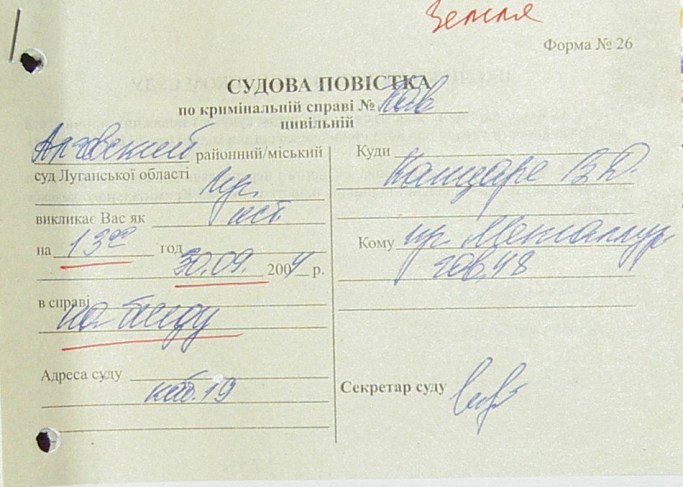 Земля
Форма № 26
СУДОВА ПОВІСТКА
по кримінальній справі №
цивільній
районний/міський
суд Луганської області
викликає Вас як
на 13 00 год
30.09. 2004 р.
в справі
на беседу
Адреса суду
каб. 19
Куди
В.Д.
Кому пр. Металлург
48
Секретар суду